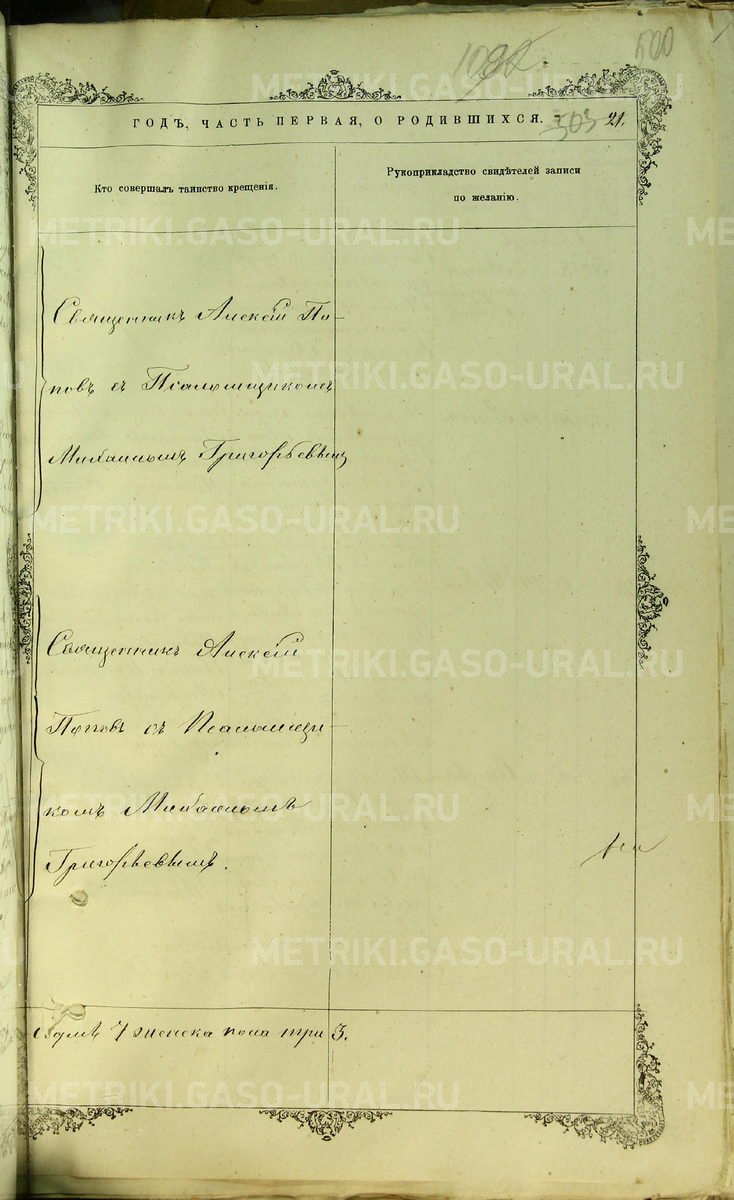 500
ГОДЪ, ЧАСТЬ ПЕРВАЯ, О РОДИВШИХСЯ. 303 21.
Кто совершалъ таинство крещенія.
Рукоприкладство свидѣтелей записи
по желанію.
Священникъ Алексій По-
повъ съ Псаломщикомъ
Михаиломъ Григорьевымъ
Священникъ Алексій
Поповъ съ Псаломщи-
комъ Михаиломъ
Григорьевымъ.
седмь 7 женска пола три 3.
METRIKI.GASO-URAL.RU